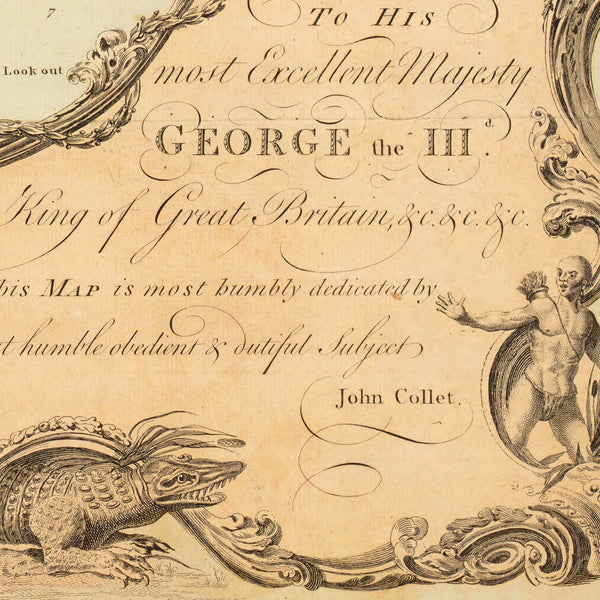 7
Look out
To His
most Excellent Majesty
GEORGE the IIId.
King of Great Britain, &c. &c. &c.
his Map is most humbly dedicated by
t humble obedient & dutiful Subject
John Collet.